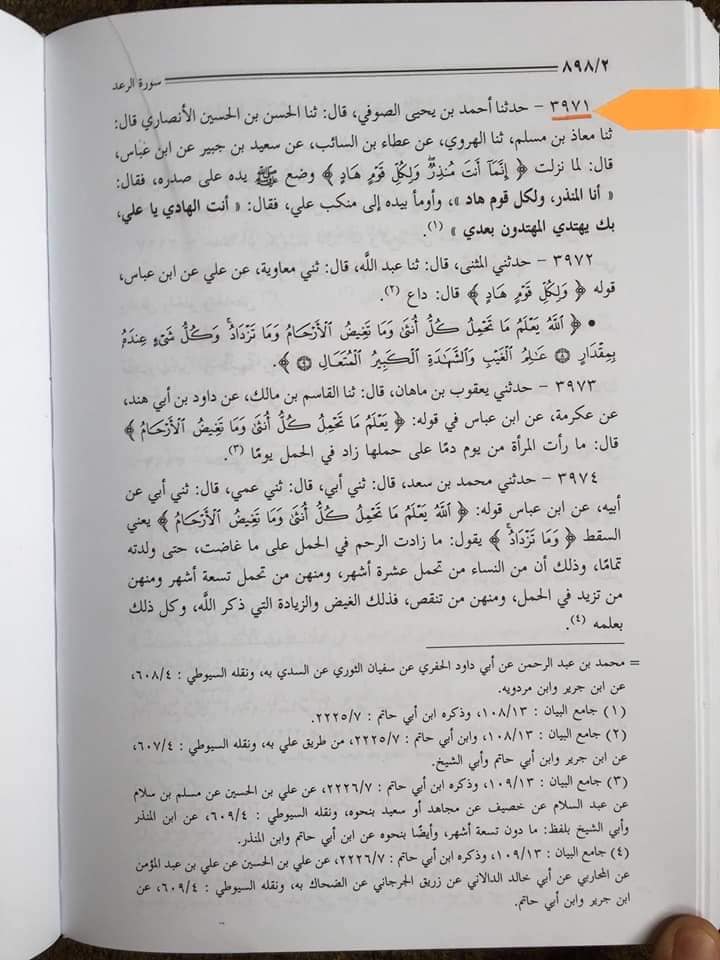 ٨٩٨/٢
سورة الرعد
٣٩٧١ – حدثنا أحمد بن يحيى الصوفي، قال: ثنا الحسن بن الحسين الأنصاري قال:
ثنا معاذ بن مسلم، ثنا الهروي، عن عطاء بن السائب، عن سعيد بن جبير عن ابن عباس،
قال: لما نزلت ﴿ إِنَّمَآ أَنتَ مُنذِرٌۖ وَلِكُلِّ قَوْمٍ هَادٍ ﴾ وضع ﷺ يده على صدره، فقال:
« أنا المنذر، ولكل قوم هاد »، وأومأ بيده إلى منكب علي، فقال: « أنت الهادي يا علي،
بك يهتدي المهتدون بعدي » (١).
٣٩٧٢ – حدثني المثنى، قال: ثنا عبد اللَّه، قال: ثني معاوية، عن علي عن ابن عباس،
قوله ﴿ وَلِكُلِّ قَوْمٍ هَادٍ ﴾ قال: داع (٢).
• ﴿ اللَّهُ يَعْلَمُ مَا تَحْمِلُ كُلُّ أُنثَىٰ وَمَا تَغِيضُ الْأَرْحَامُ وَمَا تَزْدَادُۚ وَكُلُّ شَىْءٍ عِندَهُ
بِمِقْدَارٍ ٨ عَالِمُ الْغَيْبِ وَالشَّهَادَةِ الْكَبِيرُ الْمُتَعَالِ ٩ ﴾.
٣٩٧٣ – حدثني يعقوب بن ماهان، قال: ثنا القاسم بن مالك، عن داود بن أبي هند،
عن عكرمة، عن ابن عباس في قوله: ﴿ يَعْلَمُ مَا تَحْمِلُ كُلُّ أُنثَىٰ وَمَا تَغِيضُ الْأَرْحَامُ ﴾
قال: ما رأت المرأة من يوم دمًا على حملها زاد في الحمل يومًا (٣).
٣٩٧٤ – حدثني محمد بن سعد، قال: ثني أبي، قال: ثني عمي، قال: ثني أبي عن
أبيه، عن ابن عباس قوله: ﴿ اللَّهُ يَعْلَمُ مَا تَحْمِلُ كُلُّ أُنثَىٰ وَمَا تَغِيضُ الْأَرْحَامُ ﴾ يعني
السقط ﴿ وَمَا تَزْدَادُۚ ﴾ يقول: ما زادت الرحم في الحمل على ما غاضت، حتى ولدته
تمامًا، وذلك أن من النساء من تحمل عشرة أشهر، ومنهن من تحمل تسعة أشهر ومنهن
من تزيد في الحمل، ومنهن من تنقص، فذلك الغيض والزيادة التي ذكر اللَّه، وكل ذلك
بعلمه (٤).
= محمد بن عبد الرحمن عن أبي داود الحفري عن سفيان الثوري عن السدي به، ونقله السيوطي : ٦٠٨/٤،
عن ابن جرير وابن مردويه.
(١) جامع البيان : ١٠٨/١٣، وذكره ابن أبي حاتم : ٢٢٢٥/٧.
(٢) جامع البيان : ١٠٨/١٣، وابن أبي حاتم : ٢٢٢٥/٧، من طريق علي به، ونقله السيوطي : ٦٠٧/٤،
عن ابن جرير وابن أبي حاتم وأبي الشيخ.
(٣) جامع البيان : ١٠٩/١٣، وذكره ابن أبي حاتم : ٢٢٢٦/٧، عن علي بن الحسين عن مسلم بن سلام
عن عبد السلام عن خصيف عن مجاهد أو سعيد بنحوه، ونقله السيوطي : ٦٠٩/٤، عن ابن المنذر
وأبي الشيخ بلفظ: ما دون تسعة أشهر، وأيضًا بنحوه عن ابن أبي حاتم وابن المنذر.
(٤) جامع البيان : ١٠٩/١٣، وذكره ابن أبي حاتم : ٢٢٢٦/٧، عن علي بن الحسين عن علي بن عبد المؤمن
عن المحاربي عن أبي خالد الدالاني عن زريق الجرجاني عن الضحاك به، ونقله السيوطي : ٦٠٩/٤، عن
ابن جرير وابن أبي حاتم.